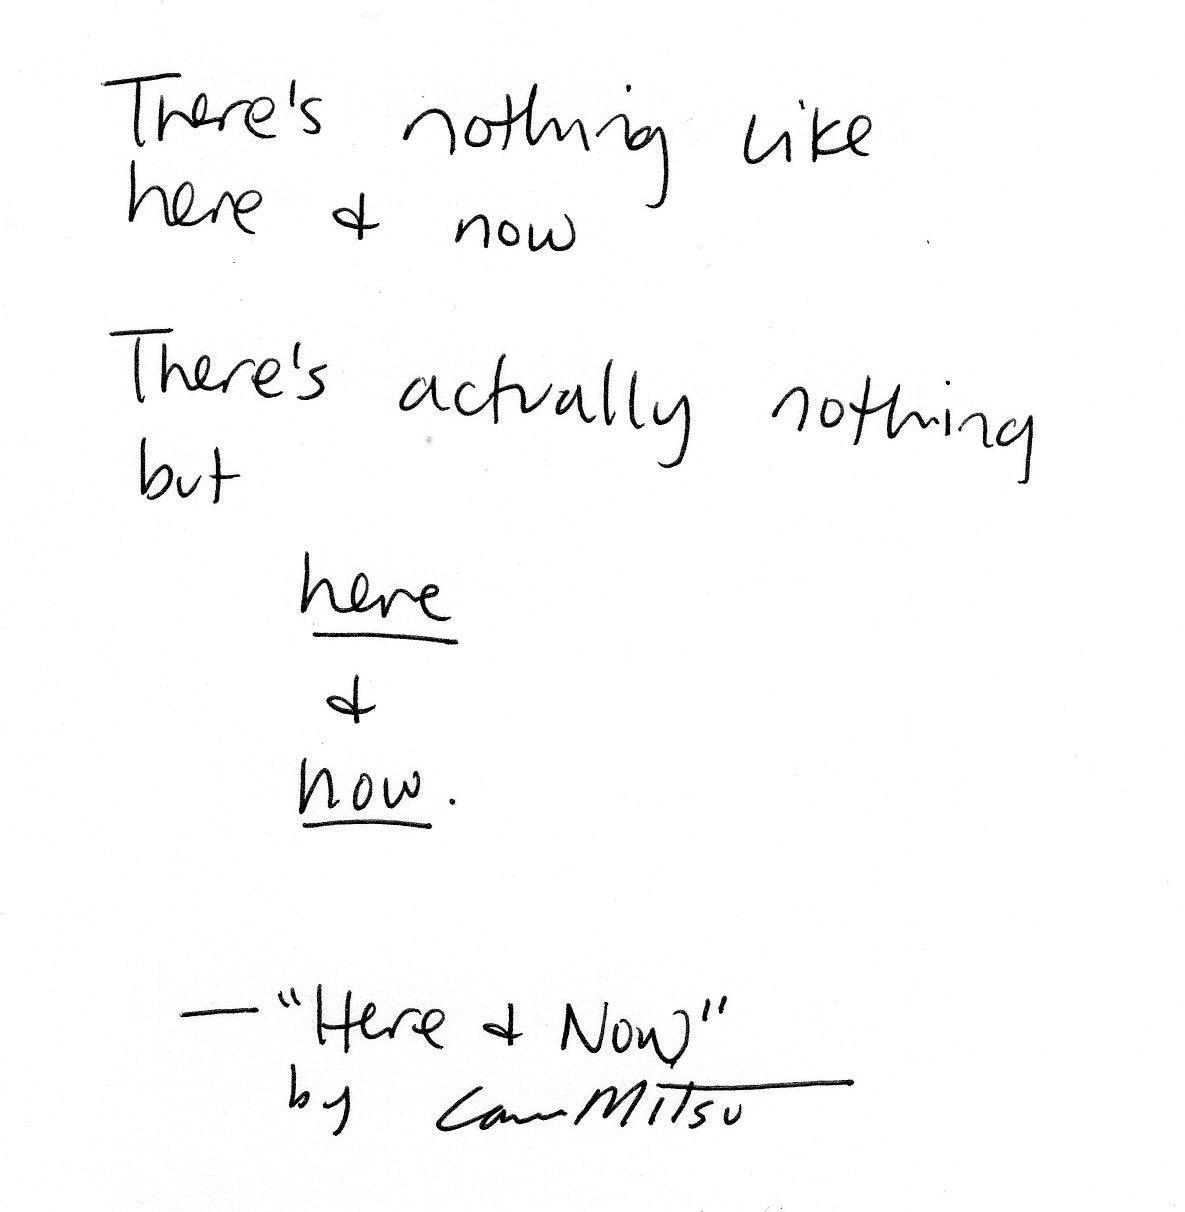 There's nothing like
here & now
There's actually nothing
but
here
&
now.
— "Here & Now"
by Mitsu